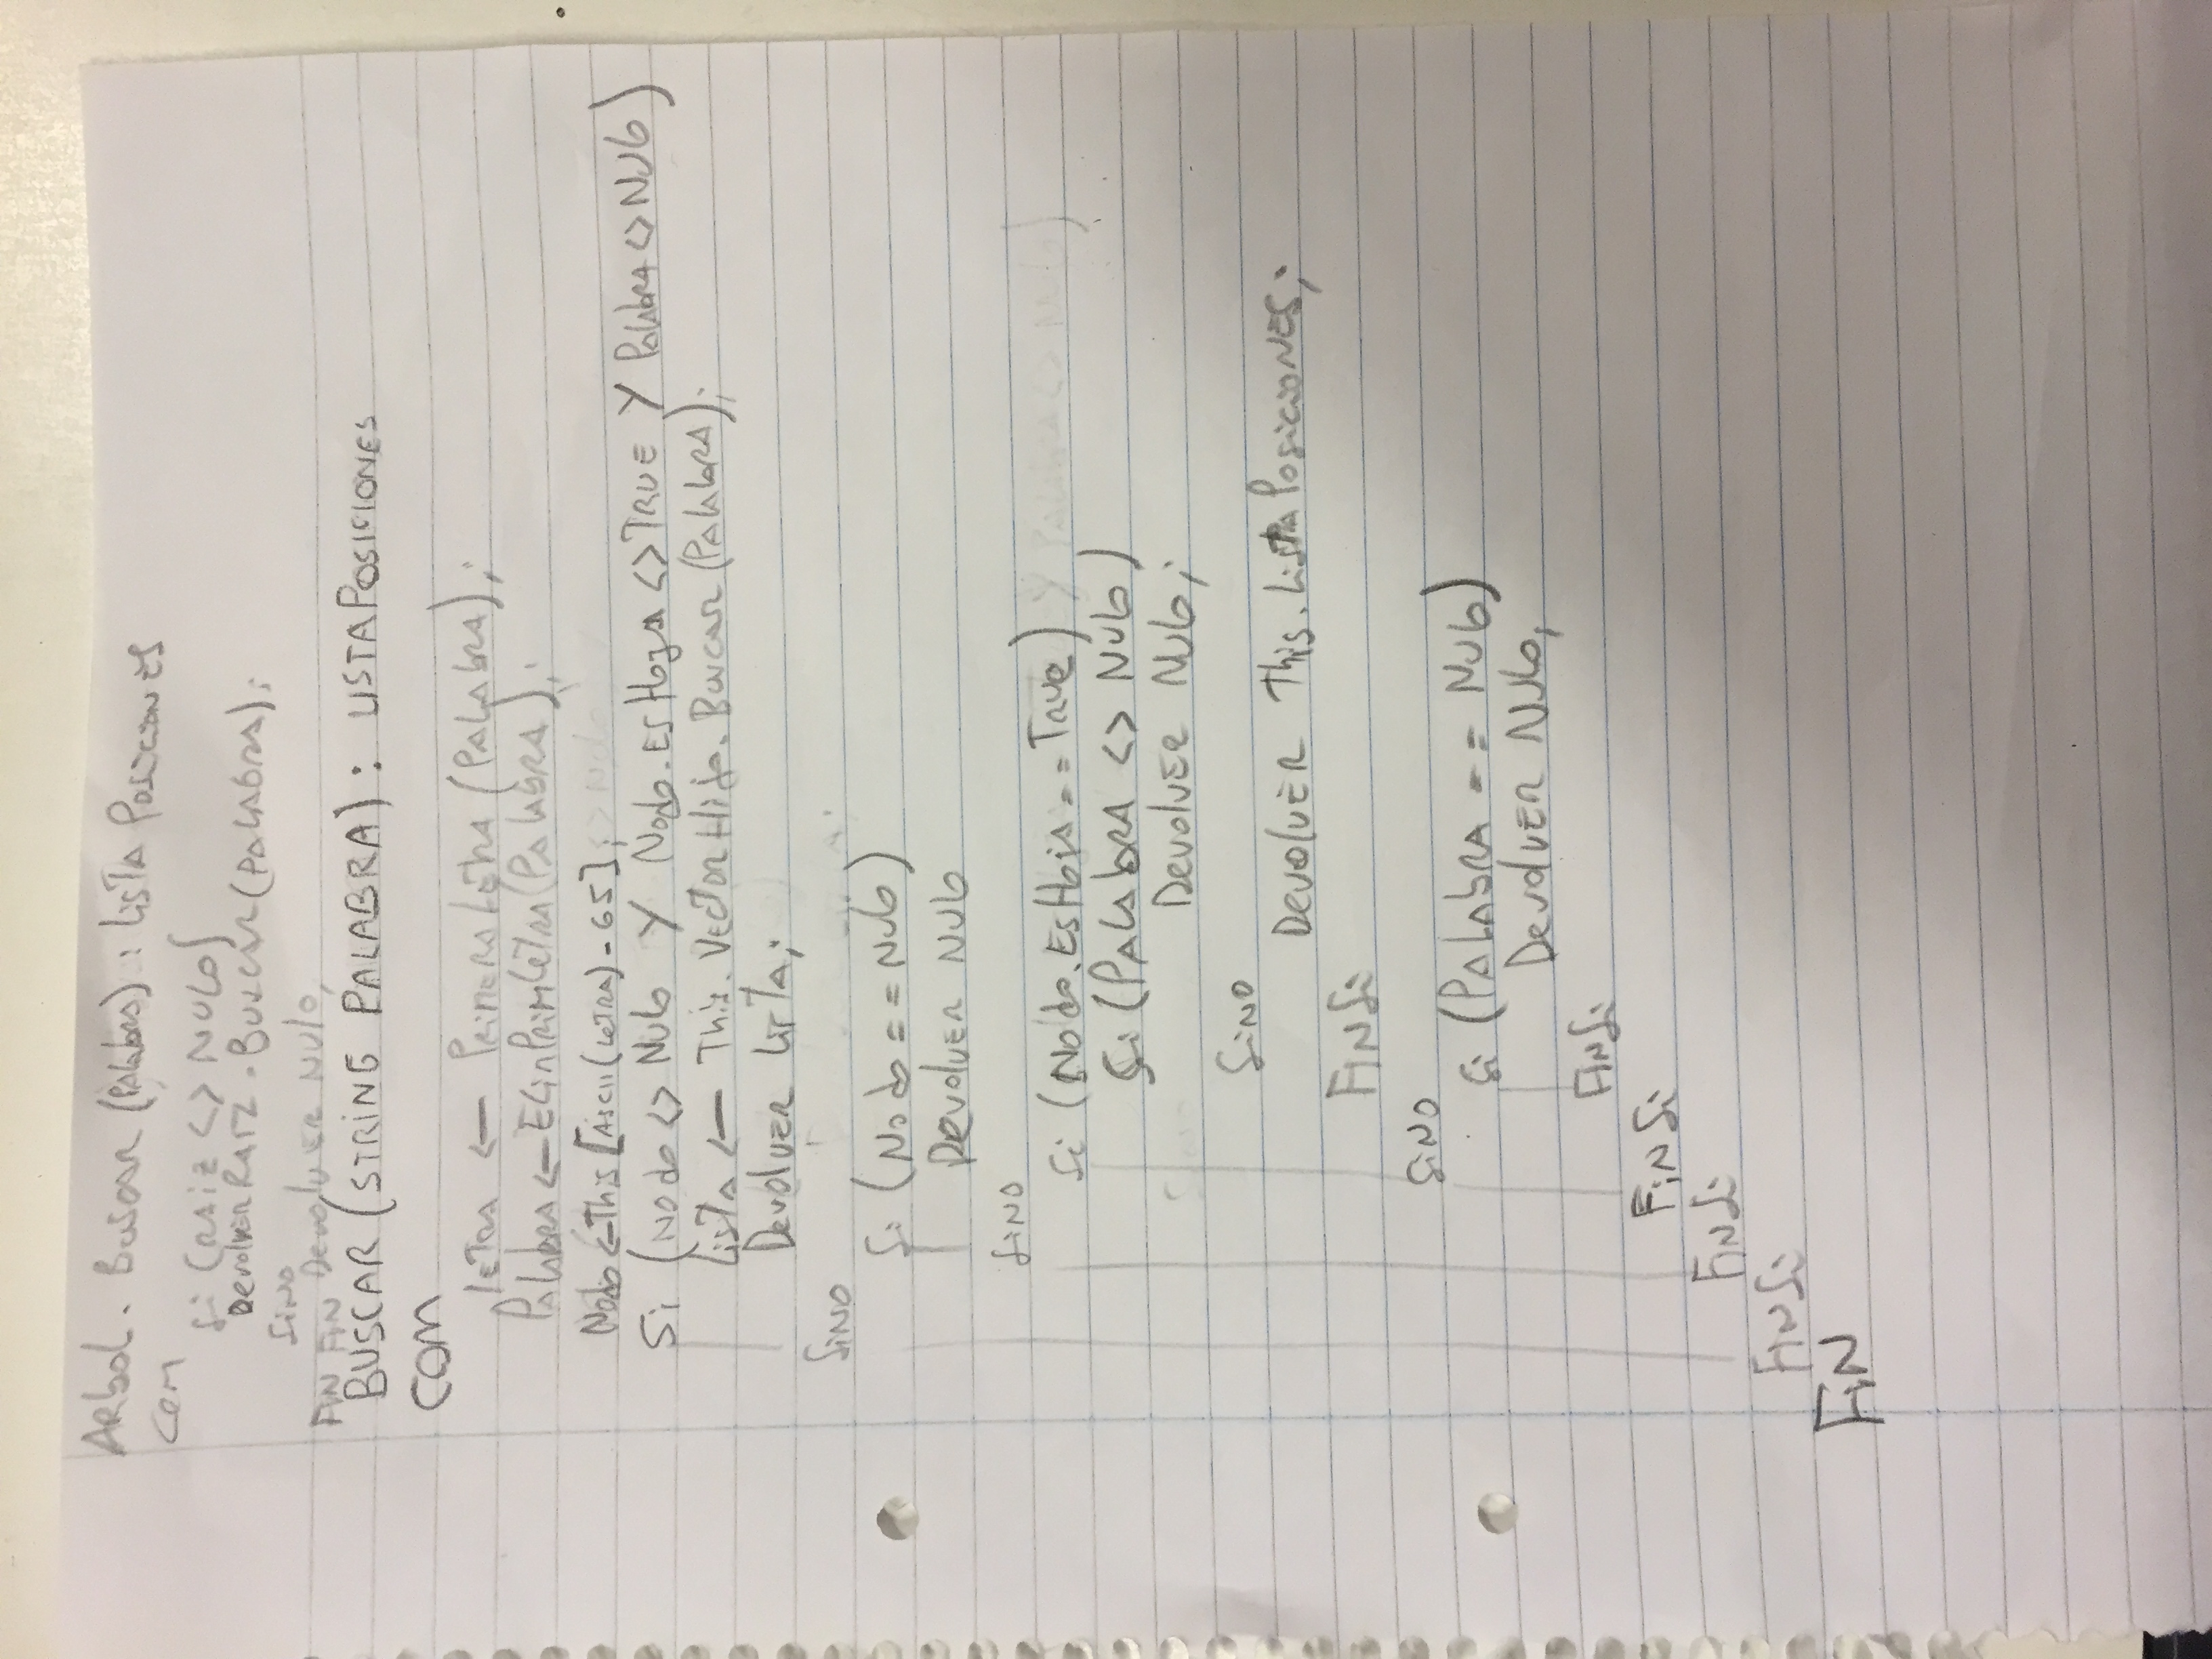 Arbol. Buscar (Palabra) : Lista Posiciones
Com
Si (RAIZ <> NULO)
Devolver RAIZ . BUSCAR (PALABRA);
Sino
FIN FIN Devolver NULO;
BUSCAR (STRING PALABRA) : LISTAPOSICIONES
COM
letra <— PrimeraLetra (PALABRA);
Palabra <— ElimPrimLetra (PALABRA);
Nodo <— This [Ascii (LETRA) - 65];
Si (Nodo <> Nulo Y Nodo.EsHoja <> TRUE Y Palabra <> NULO)
Lista <— This. VectorHijo. Buscar (PALABRA);
Devolver Lista;
Sino
Si (Nodo == Nulo)
Devolver NULO
Sino
Si (Nodo.EsHoja == True)
Si (PALAbRA <> NULO)
Devolver Nulo;
Sino
Devolver This. ListaPosiciones;
FINSi
SiNO
Si (PALAbRA == Nulo)
Devolver NULO;
FINSi
FiNSi
FINSi
FINSi
FiN